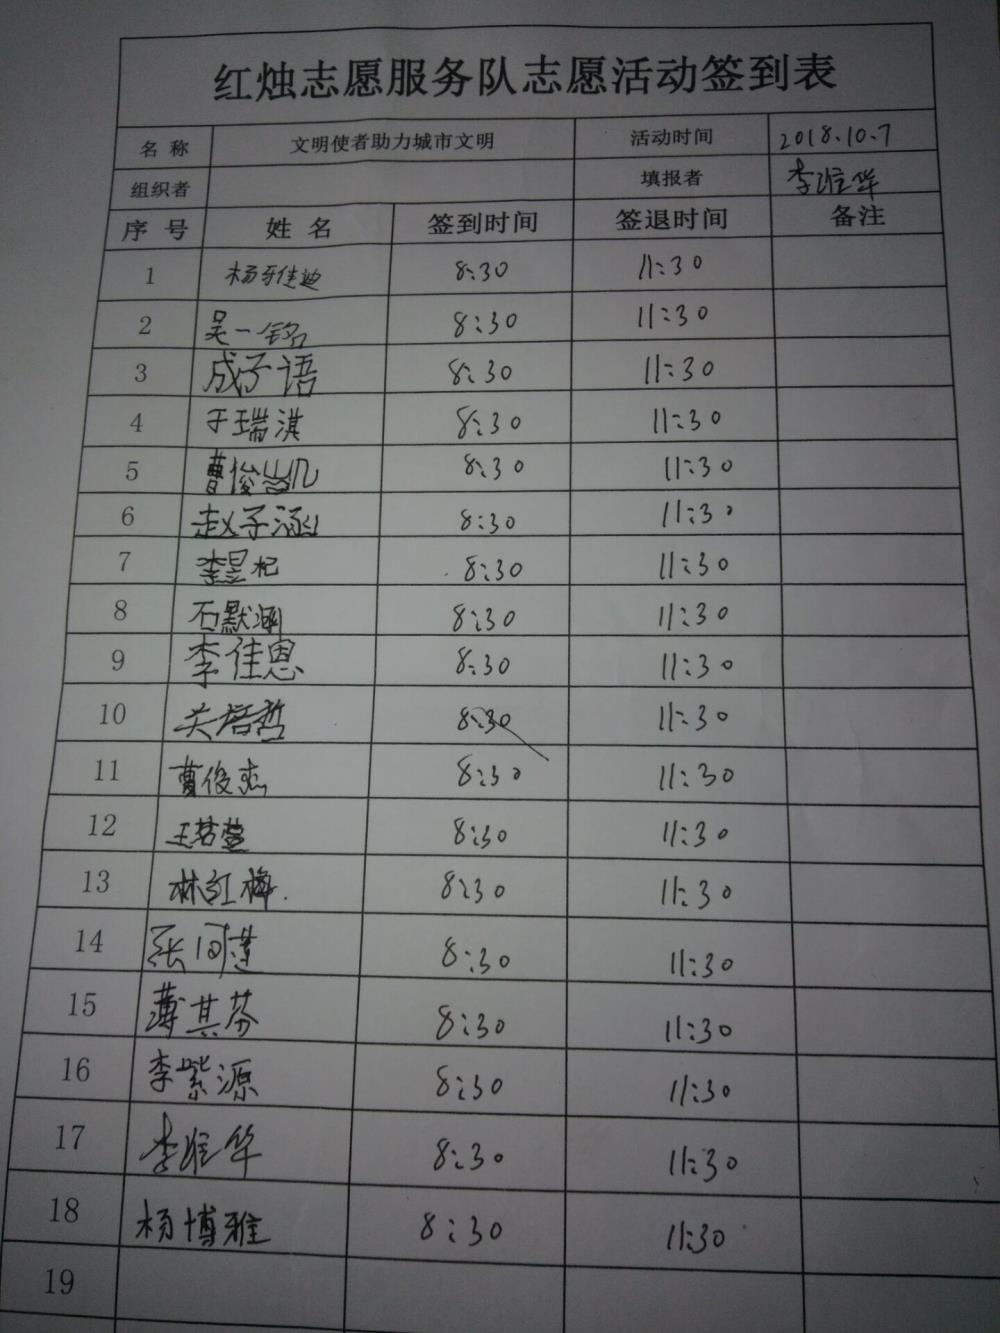 红烛志愿服务队志愿活动签到表
名 称 文明使者助力城市文明 活动时间 2018.10.7
组织者 填报者 李淮华
序 号 姓 名 签到时间 签退时间 备注
1 杨雅佳迪 8:30 11:30
2 吴一铭 8:30 11:30
3 成子语 8:30 11:30
4 于瑞淇 8:30 11:30
5 曹俊凯 8:30 11:30
6 赵子涵 8:30 11:30
7 李昱杞 8:30 11:30
8 石默涵 8:30 11:30
9 李佳恩 8:30 11:30
10 关培哲 8:30 11:30
11 曹俊杰 8:30 11:30
12 王茗萱 8:30 11:30
13 林红梅. 8:30 11:30
14 张同莲 8:30 11:30
15 薄其芬 8:30 11:30
16 李紫源 8:30 11:30
17 李淮华 8:30 11:30
18 杨博雅 8:30 11:30
19